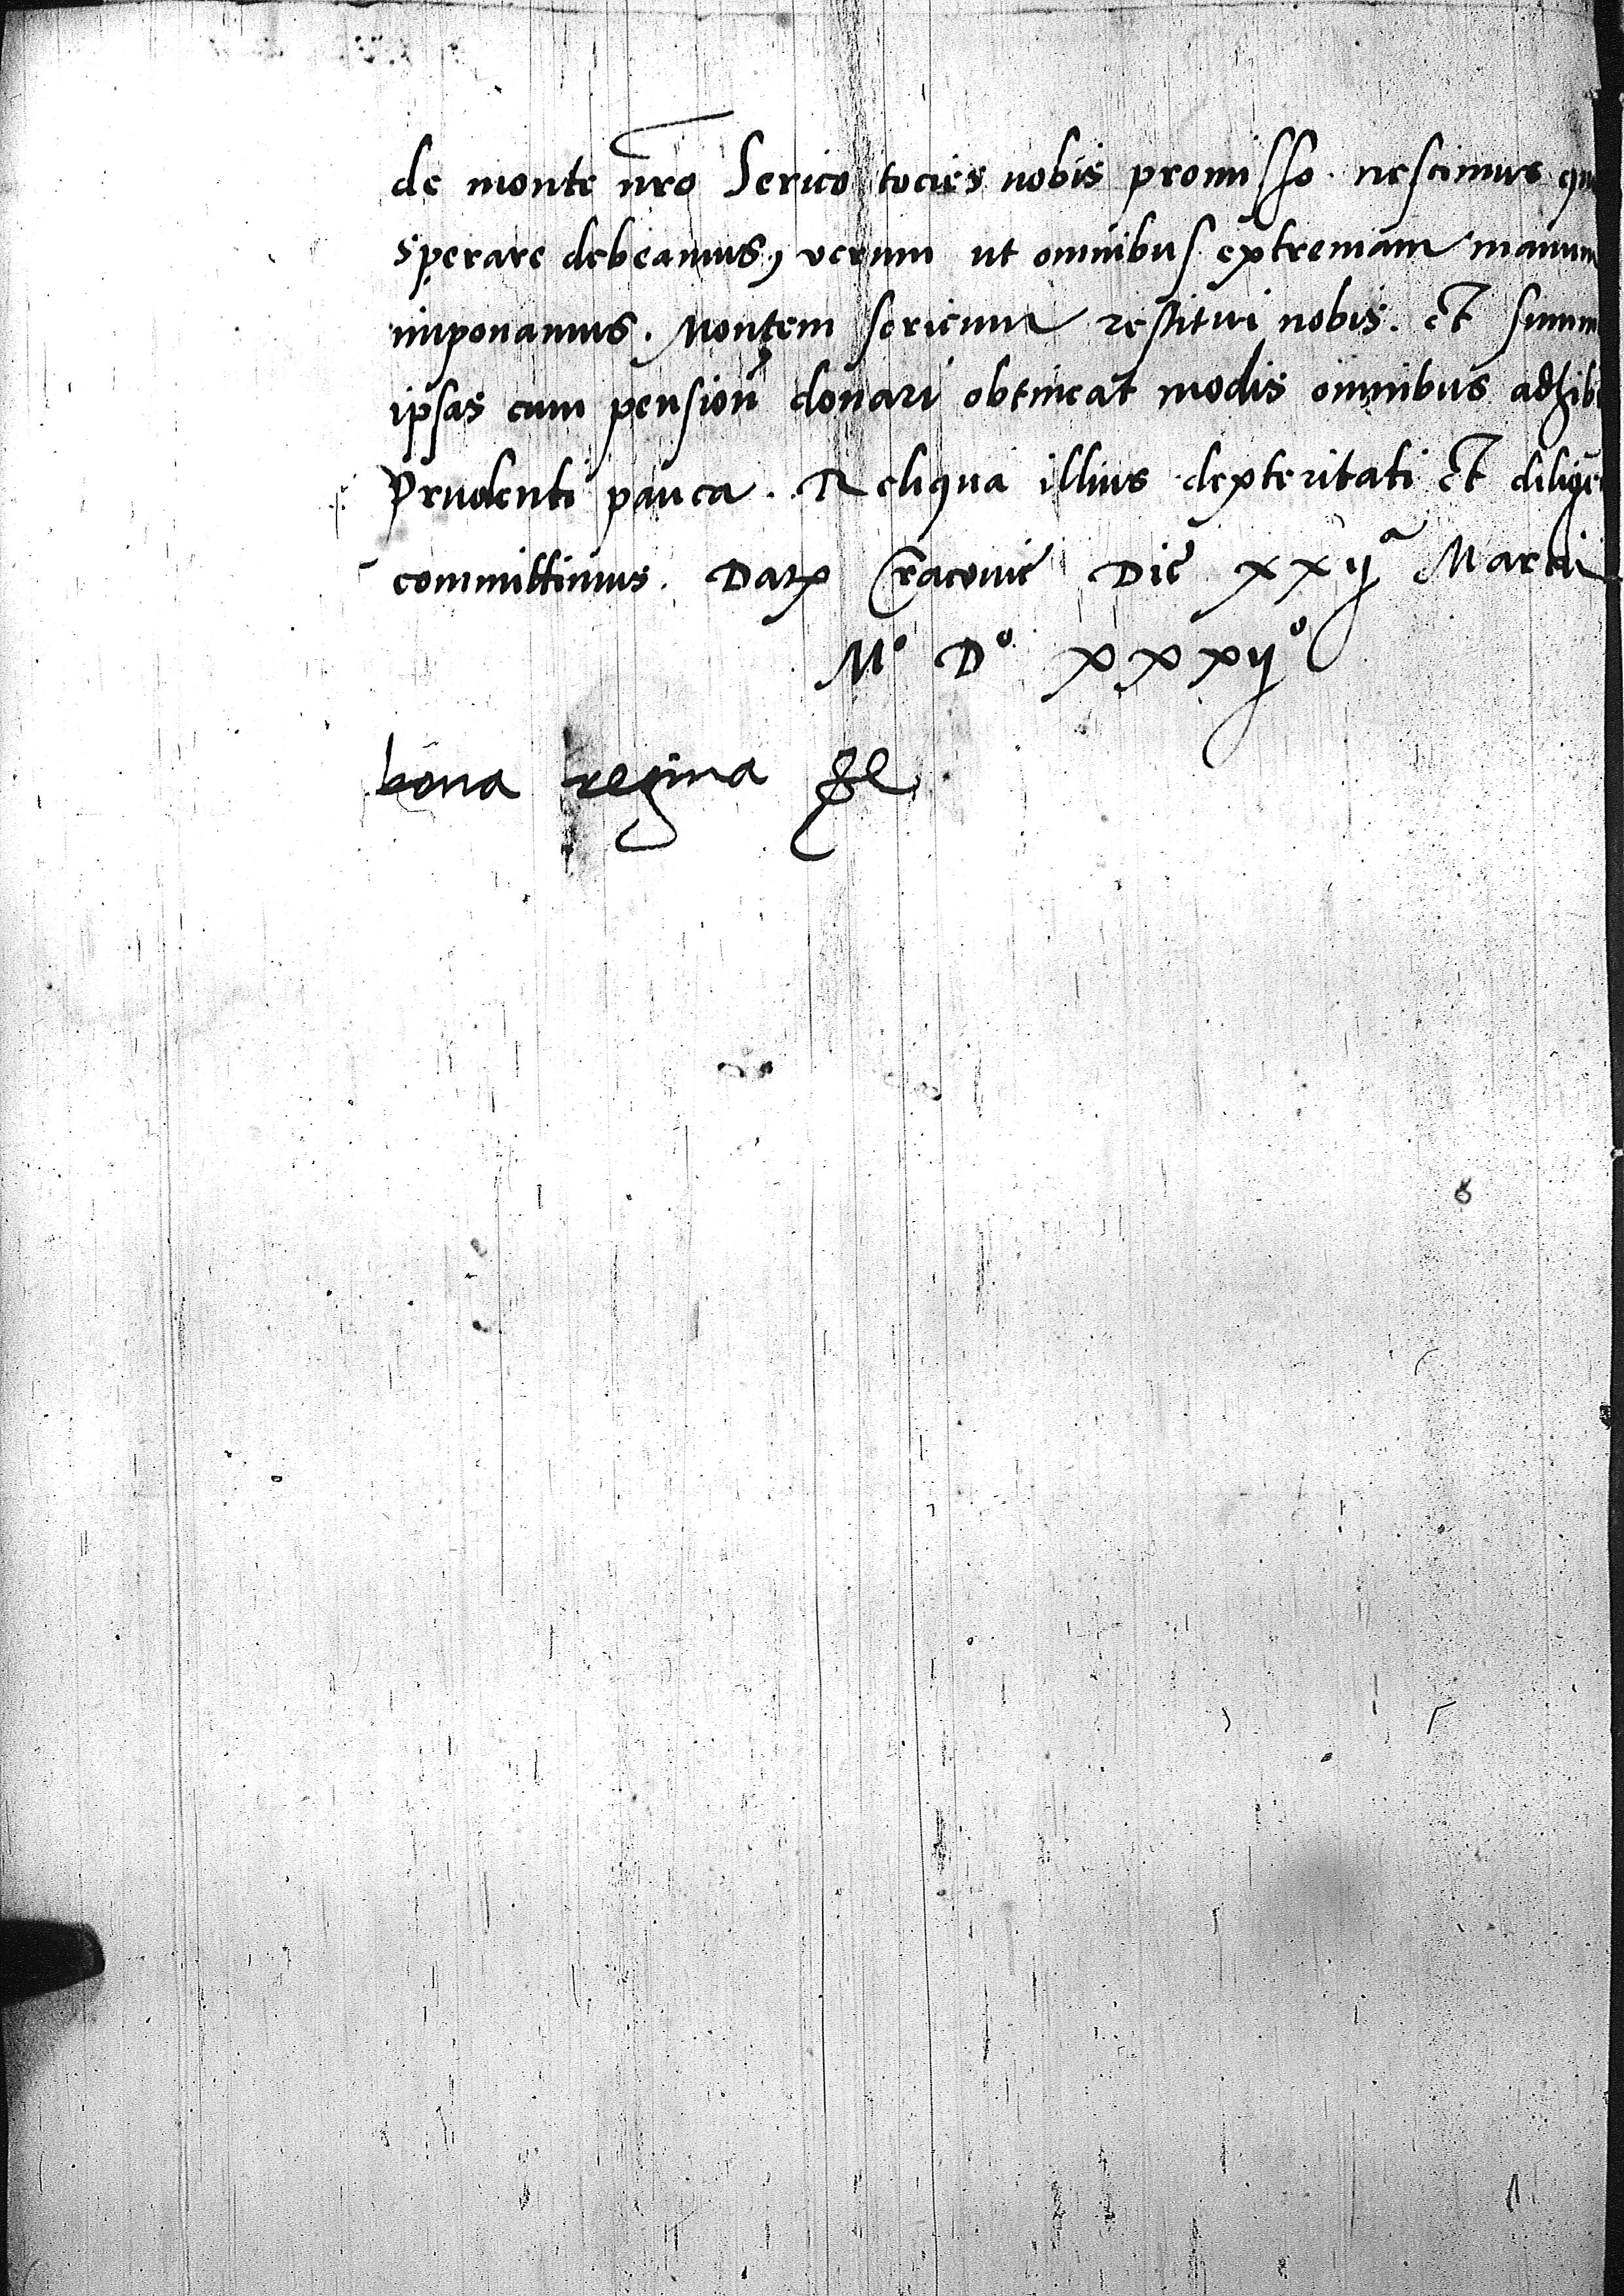 de monte nr̄o Serico tocies nobis promisso. nescimus
sperare debeamus, verum ut omnibus extremam manum
imponamus. Montem sericum restitui nobis. et
ipsas cum pension̄ donari obtineat modis omnibus
Prudenti pauca. Reliqua illius dexteritati et
committimus. Datꝝ Cracovie Die xxijᵃ Martii
Mº Dº xxxijº
bona regina